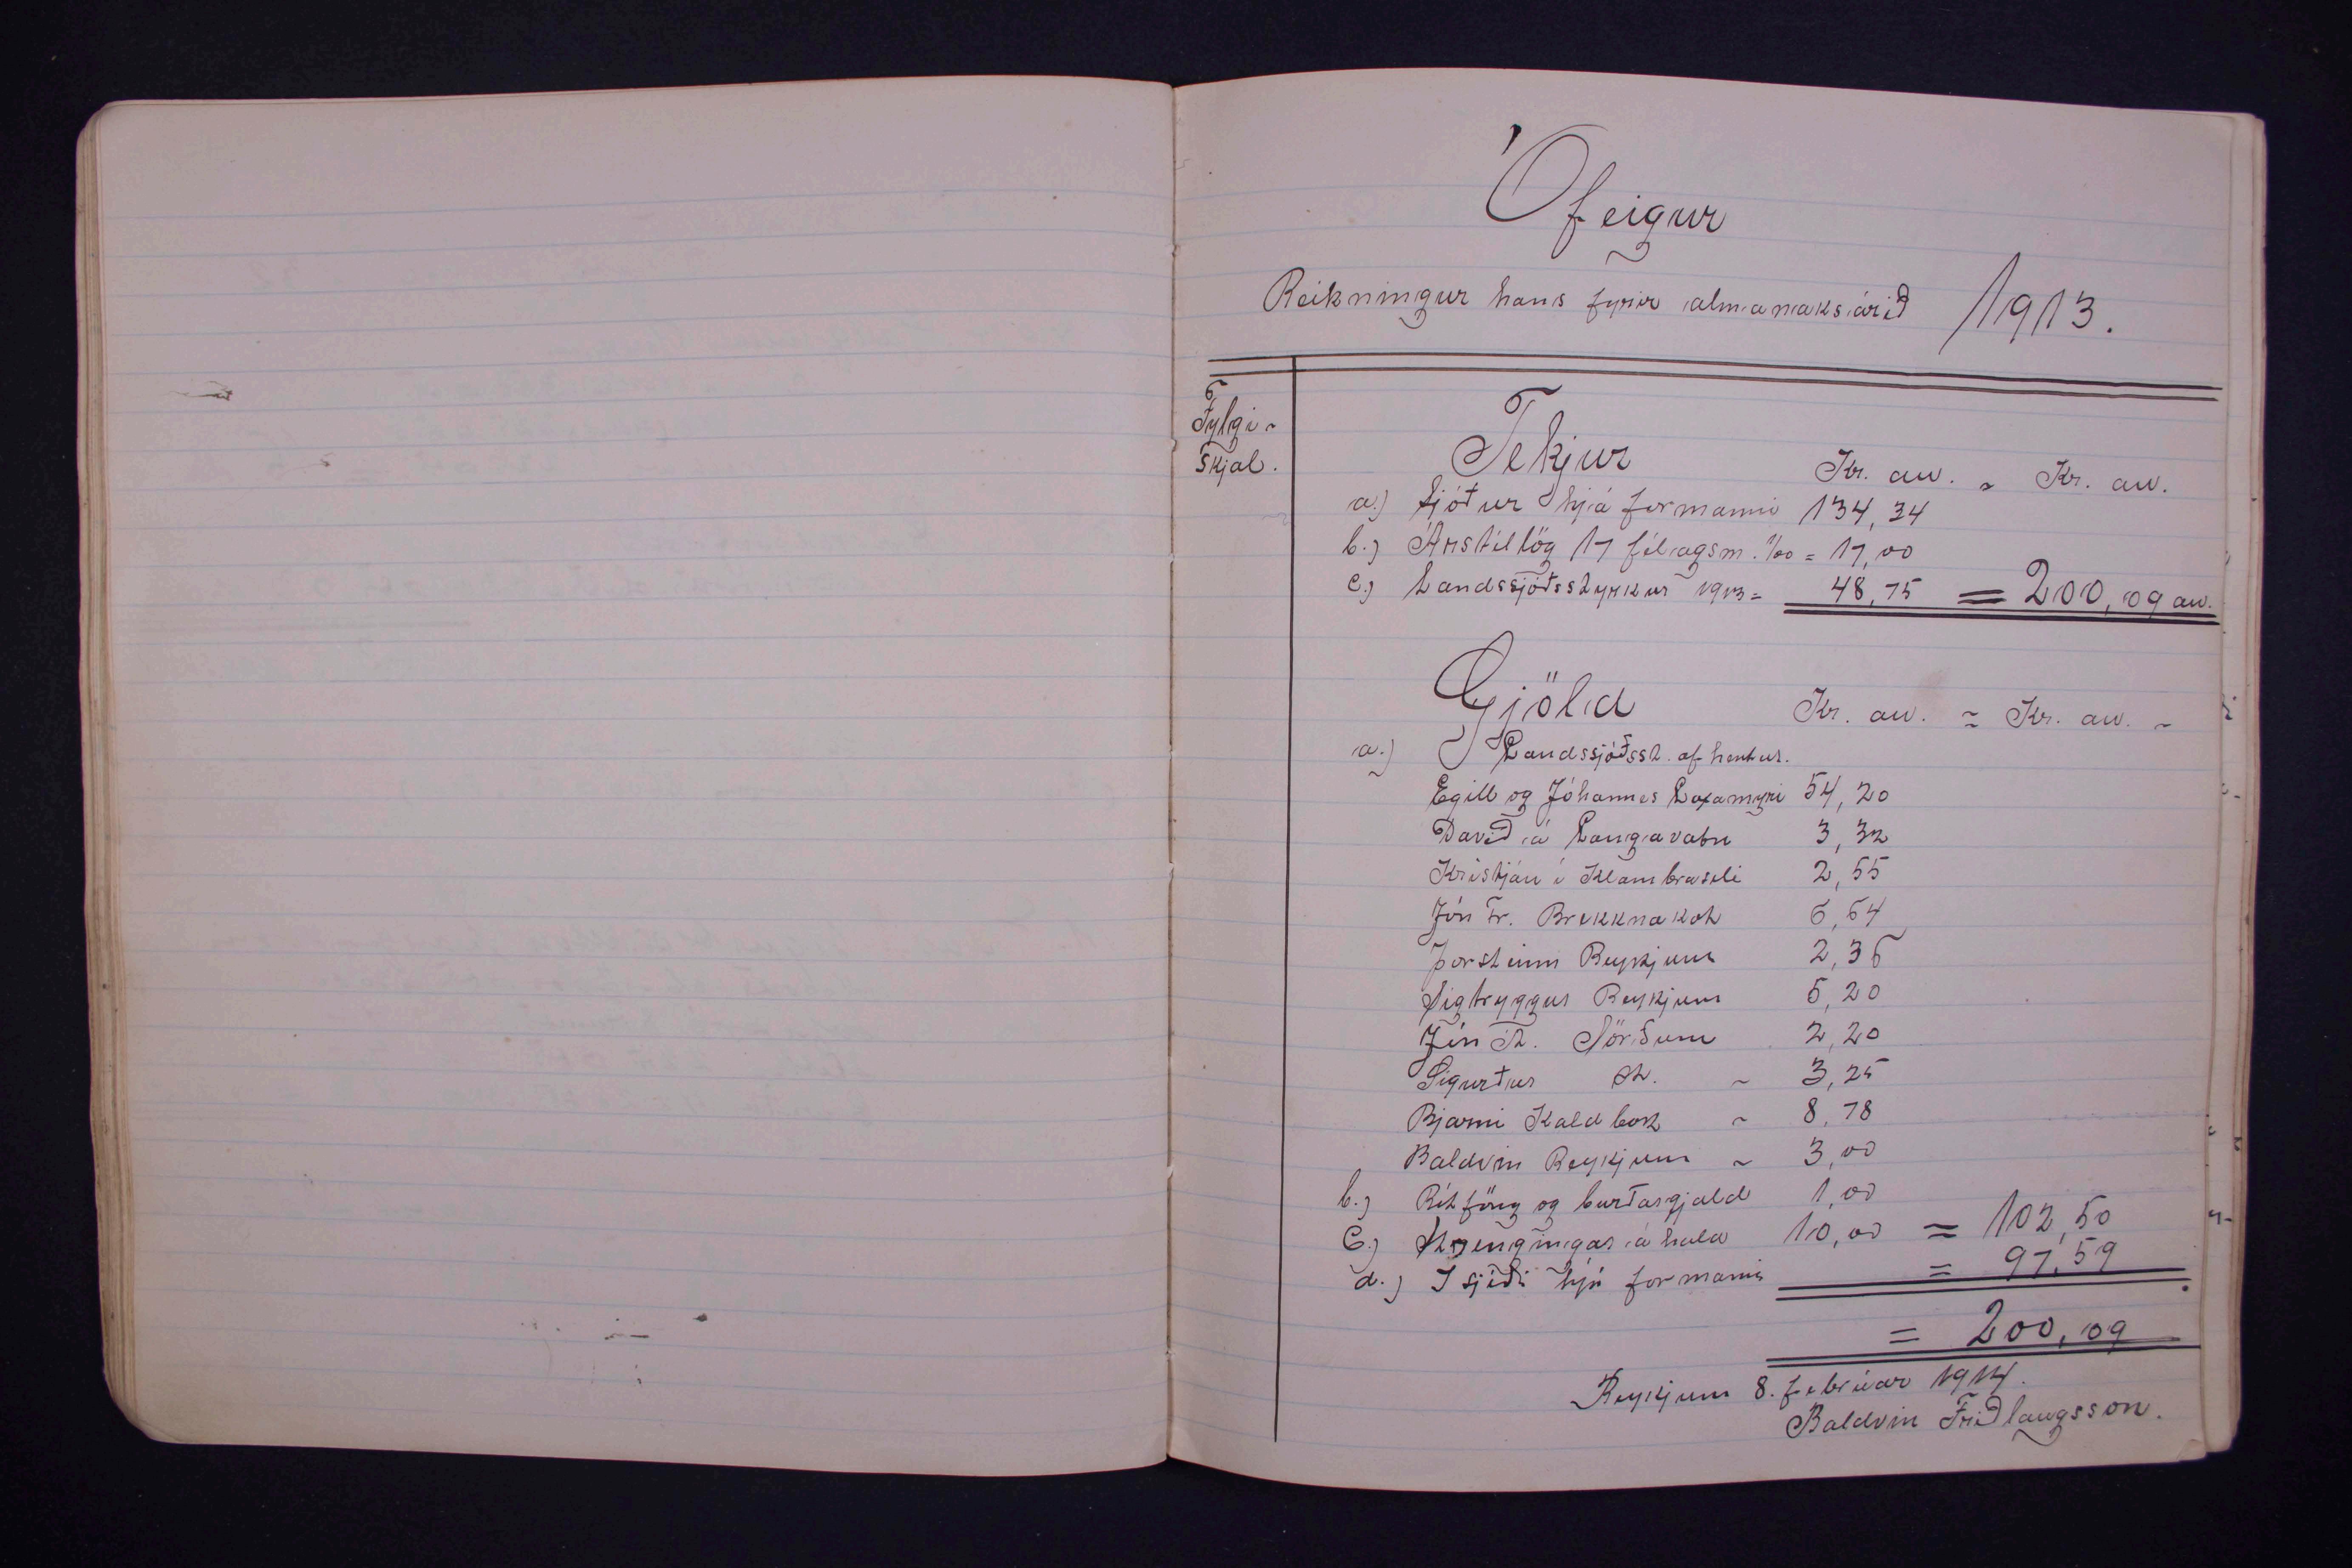 Ófeigur
Reikningur hans fyrir almanaksárið 1913.
Fylgi-
skjal.
Tekjur Kr. au. ~ Kr. au.
a.) Sjóður hjá formanni 134,34
b.) Árstillög 17 félagsm. 1/00 = 17,00
c.) Landssjóðsstyrkur 1913 = 48,75 = 200,09 au.
Gjöld Kr. au. ~ Kr. au. ~
a.) Landssjóðsst. afhentur.
Egill og Jóhannes Laxamýri 54,20
Davíð á Langavatn 3,32
Kristján í Klambraseli 2,55
Jón Fr. Brekknakot 6,64
Þorsteinn Reykjum 2,36
Sigtryggur Reykjum 5,20
Jón St. Nörðum 2,20
Sigurður st. ~ 3,25
Bjarni Kaldbak ~ 8,78
Baldvin Reykjum ~ 3,00
b.) Ritföng og burðargjald 1,00
c.) á hald 10,00 = 102,50
d.) Í sjóði hjá formanni = 97,59
= 200,09
Reykjum 8. febrúar 1914.
Baldvin Friðlaugsson.